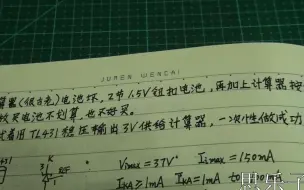 JUREN WENCAI
算器(很古老)电池坏, 2节1.5V钮扣电池, 再加上计算器按
买电池不划算, 也不好买。
着旧TL431稳压输出3V供给计算器, 一次性做成功
431
K
REF
Vimax = 37V Iimax = 150mA
IKA ≥ 1mA IKA = 1mA to